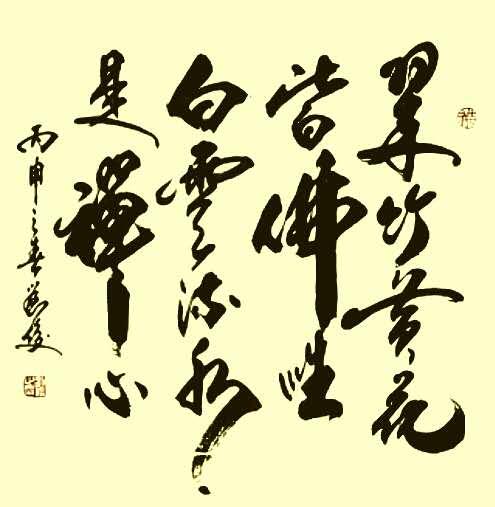 翠竹黄花
皆佛性
白雲流水
是禪心
丙申之春